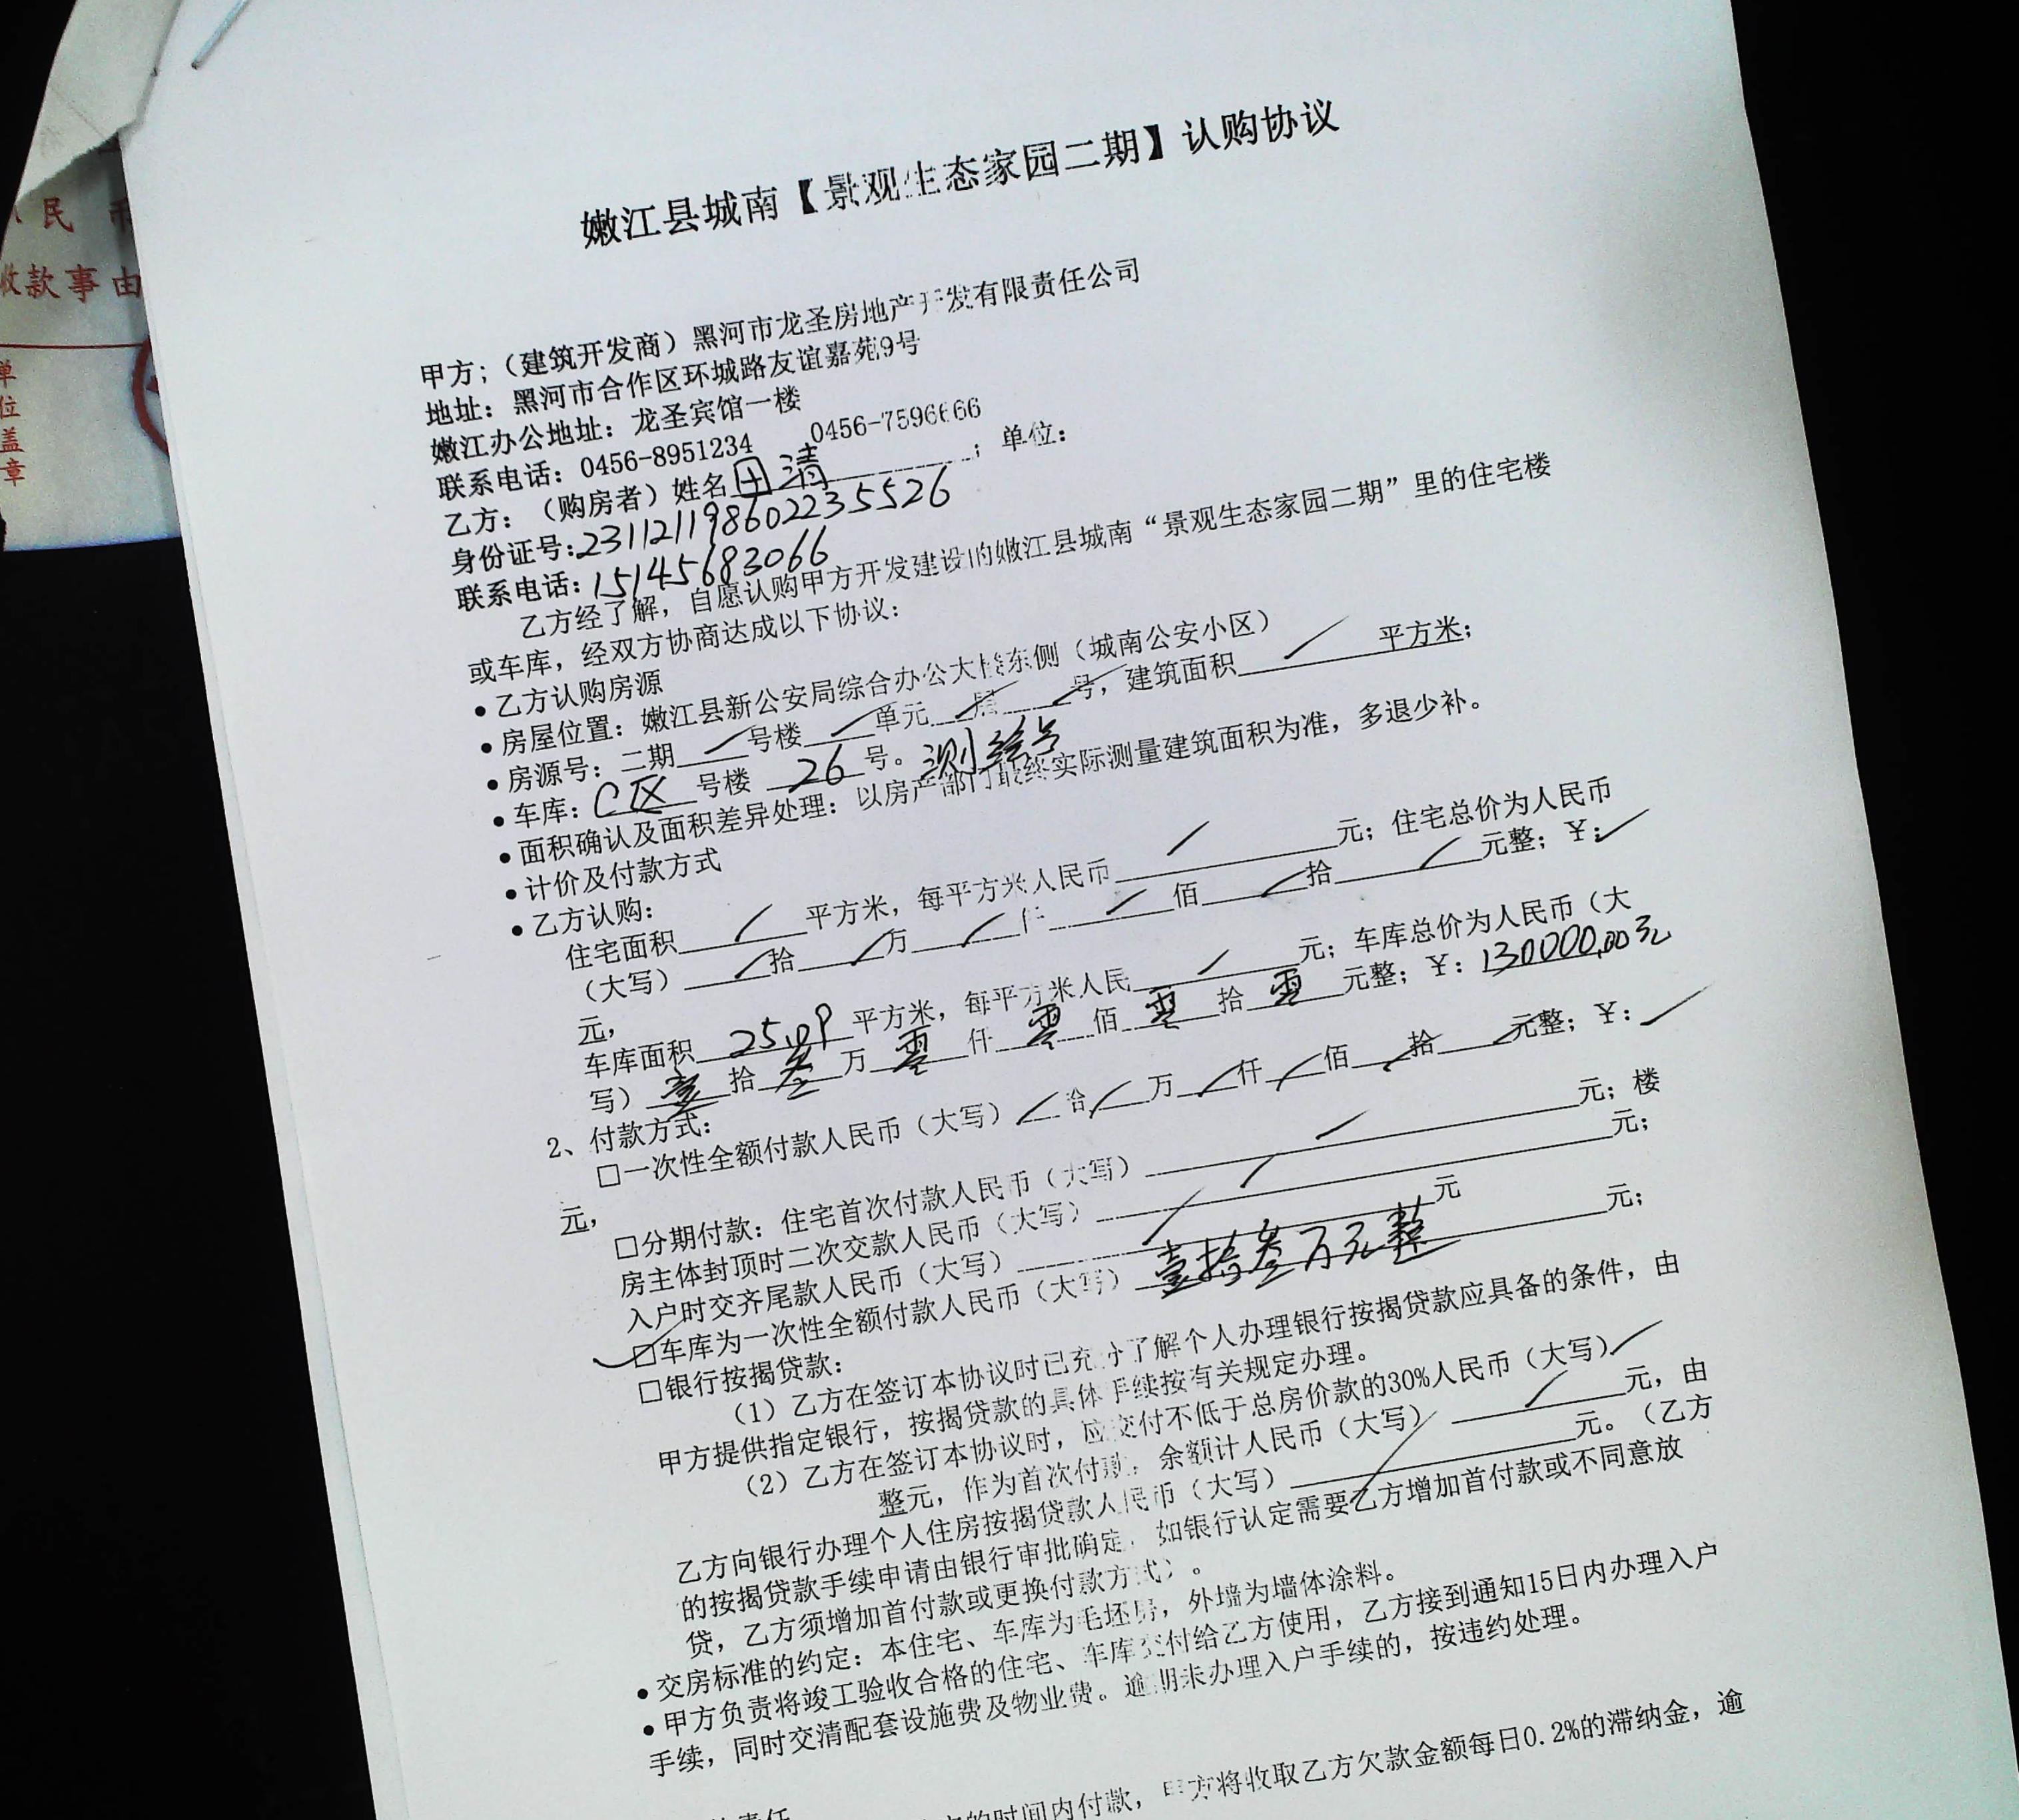 嫩江县城南【景观生态家园二期】认购协议
甲方；（建筑开发商）黑河市龙圣房地产开发有限责任公司
地址：黑河市合作区环城路友谊嘉苑9号
嫩江办公地址：龙圣宾馆一楼
联系电话：0456-8951234 0456-7596666
乙方：（购房者）姓名田清；单位：
身份证号:231121198602235526
联系电话:15145683066
乙方经了解，自愿认购甲方开发建设的嫩江县城南“景观生态家园二期”里的住宅楼
或车库，经双方协商达成以下协议：
• 乙方认购房源
• 房屋位置：嫩江县新公安局综合办公大楼东侧（城南公安小区）
• 房源号：二期 / 号楼 / 单元 / 层 / 号，建筑面积 / 平方米；
• 车库：C区 号楼 26 号。测绘号
• 面积确认及面积差异处理：以房产部门最终实际测量建筑面积为准，多退少补。
• 计价及付款方式
• 乙方认购：
住宅面积 / 平方米，每平方米人民币 / 元；住宅总价为人民币
（大写） / 拾 / 万 / 仟 / 佰 / 拾 / 元整；￥：/
元，
车库面积 25.09 平方米，每平方米人民 / 元；车库总价为人民币（大
写）壹拾叁万零仟零佰零拾零元整；￥：130000.00元
2、付款方式：
□一次性全额付款人民币（大写） / 拾 / 万 / 仟 / 佰 / 拾 / 元整；￥：/
元，
□分期付款：住宅首次付款人民币（大写） / 元；楼
房主体封顶时二次交款人民币（大写） / 元；
入户时交齐尾款人民币（大写） / 元
☑车库为一次性全额付款人民币（大写）壹拾叁万元整 元；
□银行按揭贷款：
（1）乙方在签订本协议时已充分了解个人办理银行按揭贷款应具备的条件，由
甲方提供指定银行，按揭贷款的具体手续按有关规定办理。
（2）乙方在签订本协议时，应交付不低于总房价款的30%人民币（大写） /
整元，作为首次付款，余额计人民币（大写） / 元，由
乙方向银行办理个人住房按揭贷款人民币（大写） / 元。（乙方
的按揭贷款手续申请由银行审批确定，如银行认定需要乙方增加首付款或不同意放
贷，乙方须增加首付款或更换付款方式）。
• 交房标准的约定：本住宅、车库为毛坯房，外墙为墙体涂料。
• 甲方负责将竣工验收合格的住宅、车库交付给乙方使用，乙方接到通知15日内办理入户
手续，同时交清配套设施费及物业费。逾期未办理入户手续的，按违约处理。
的时间内付款，甲方将收取乙方欠款金额每日0.2%的滞纳金，逾
责任
民
收款事由
单位盖章